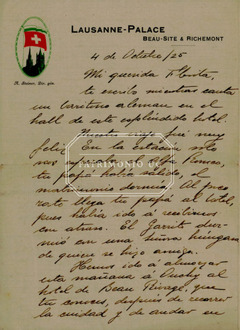 LAUSANNE-PALACE
BEAU-SITE & RICHEMONT
4 de Octubre/25
Mi querida
te escribo mientras canta
un terceto aleman en el
hall de este espléndido hotel.
Nuestro viaje fué muy
feliz. En la estación solo
nos
tu papá había salido, el
matrimonio dormía. Al poco
rato llega tu papá al hotel,
pues había ido á
con otros. El
mió en una
de quien se hizo amiga.
Hemos ido á almorzar
esta mañana á Ouchy al
hotel de Beau Rivage, que
tu conoces, después de recorrer
la ciudad y de andar en
PATRIMONIO